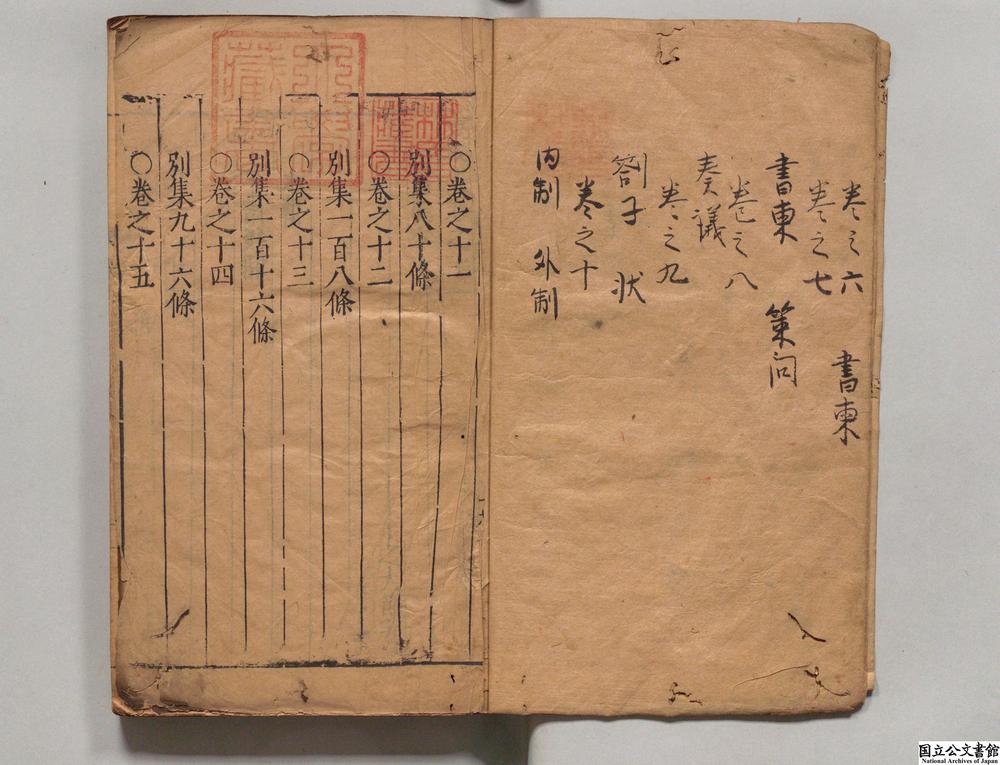 卷之六 書柬
卷之七
書柬 策问
卷之八
奏議
卷之九
劄子 状
卷之十
内制 外制
〇卷之十一
別集八十條
〇卷之十二
別集一百八條
〇卷之十三
別集一百十六條
〇卷之十四
別集九十六條
〇卷之十五
国立公文書館
National Archives of Japan